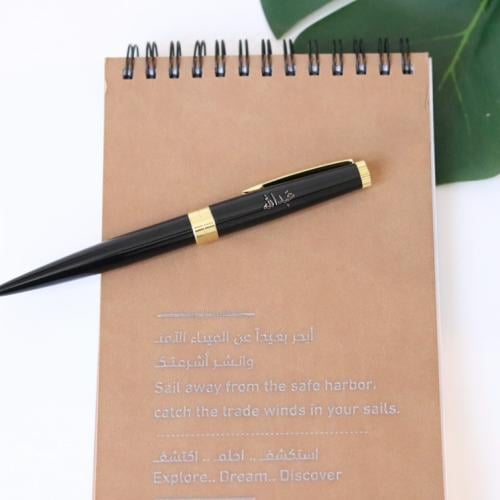 عبدالله
أبحر بعيداً عن الميناء الآمن
وانشر أشرعتك
Sail away from the safe harbor.
catch the trade winds in your sails.
استكشف .. احلم .. اكتشف
Explore.. Dream.. Discover